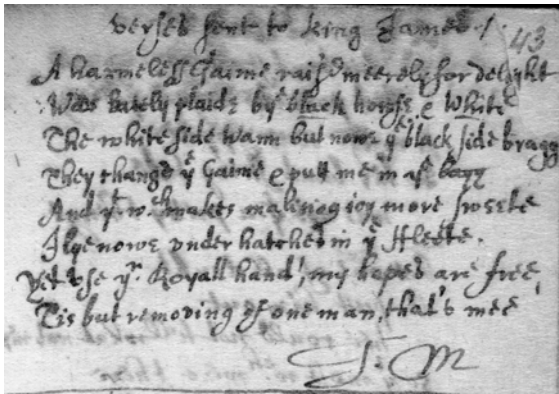 verses sent to King James /.
43
A harmeless Gaime raisd meerely for delight
Was lately plaide by ye black house & white
The white side wann but nowe ye black side bragg
They changd ye Gaime & putt me in ye bagg
And yt wch makes malicious joy more sweete
I lye nowe under hatches in ye Fleete.
Yet use yr Royall hand, my hopes are free,
Tis but removing of one man, that's mee
T. M